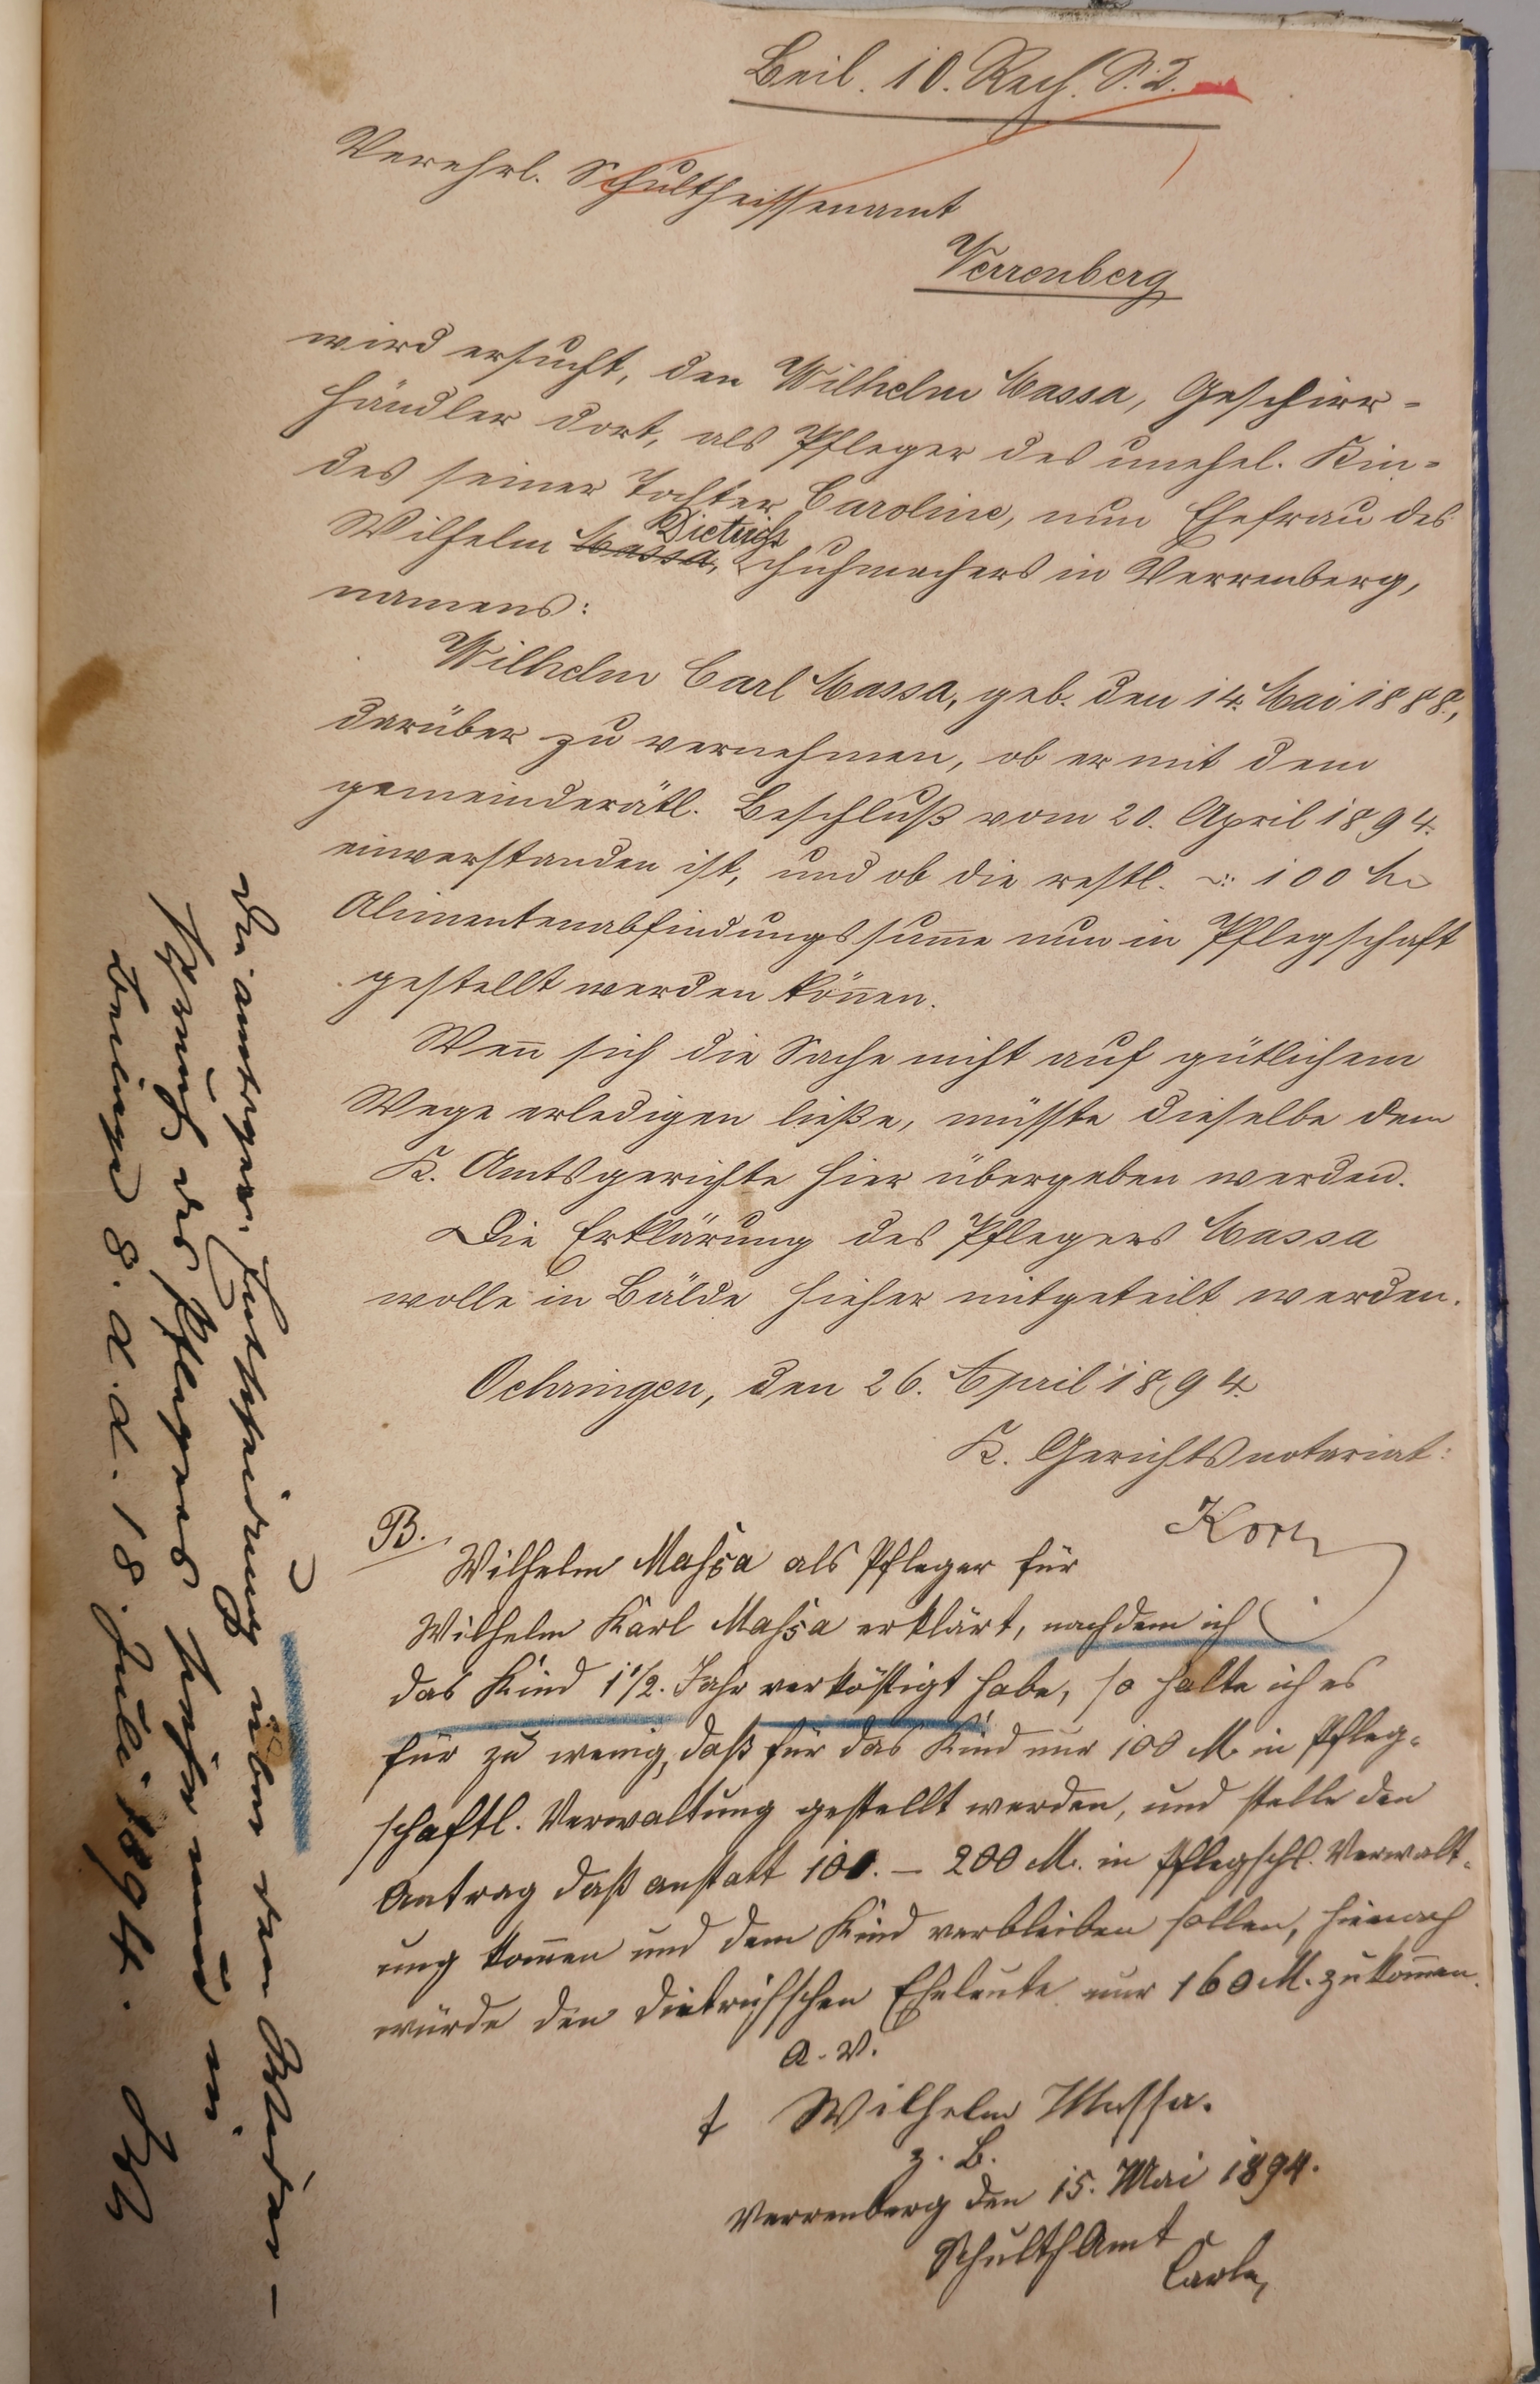 Beil. 10. Rech. S. 2.
Verehrl. Schultheissenamt
Verrenberg
wird ersucht, den Wilhelm Massa, Geschirr-
händler dort, als Pfleger des unehel. Kin-
des seiner Tochter Caroline, nun Ehefrau des
Dietrich
Wilhelm Massa, Schuhmachers in Verrenberg,
namens:
Wilhelm Carl Massa, geb. den 14. Mai 1888.,
darüber zu vernehmen, ob er mit dem
gemeinderätl. Beschluß vom 20. April 1894.
einverstanden ist, und ob die restl. 100 M
Alimentenabfindungssumme nun in Pflegschaft
gestellt werden können.
Wenn sich die Sache nicht auf gütlichem
Wege erledigen ließe, müsste dieselbe dem
K. Amtsgerichte hier übergeben werden.
Die Erklärung des Pflegers Massa
wolle in Bälde hieher mitgeteilt werden.
Oehringen, den 26. April 1894.
K. Gerichtsnotariat:
B.
Wilhelm Massa als Pfleger für
Wilhelm Karl Massa erklärt, nachdem ich
das Kind 1 1/2. Jahr verköstigt habe, so halte ich es
für zu wenig, daß für das Kind nur 100 M in Pfleg-
schaftl. Verwaltung gestellt werden, und stelle den
Antrag daß anstatt 100. – 200 M. in Pflegschl. Verwalt-
ung kommen und dem Kind verbleiben sollen, hienach
würde den Dietrich'schen Eheleute nur 160 M. zukommen.
a. V.
Wilhelm Massa.
z. B.
Verrenberg den 15. Mai 1894.
SchulthAmt
Carle
Die amtsger. Entscheidung über den Wider-
spruch des Pflegers siehe
Beilage 8. d. d. 18. Juli 1894.